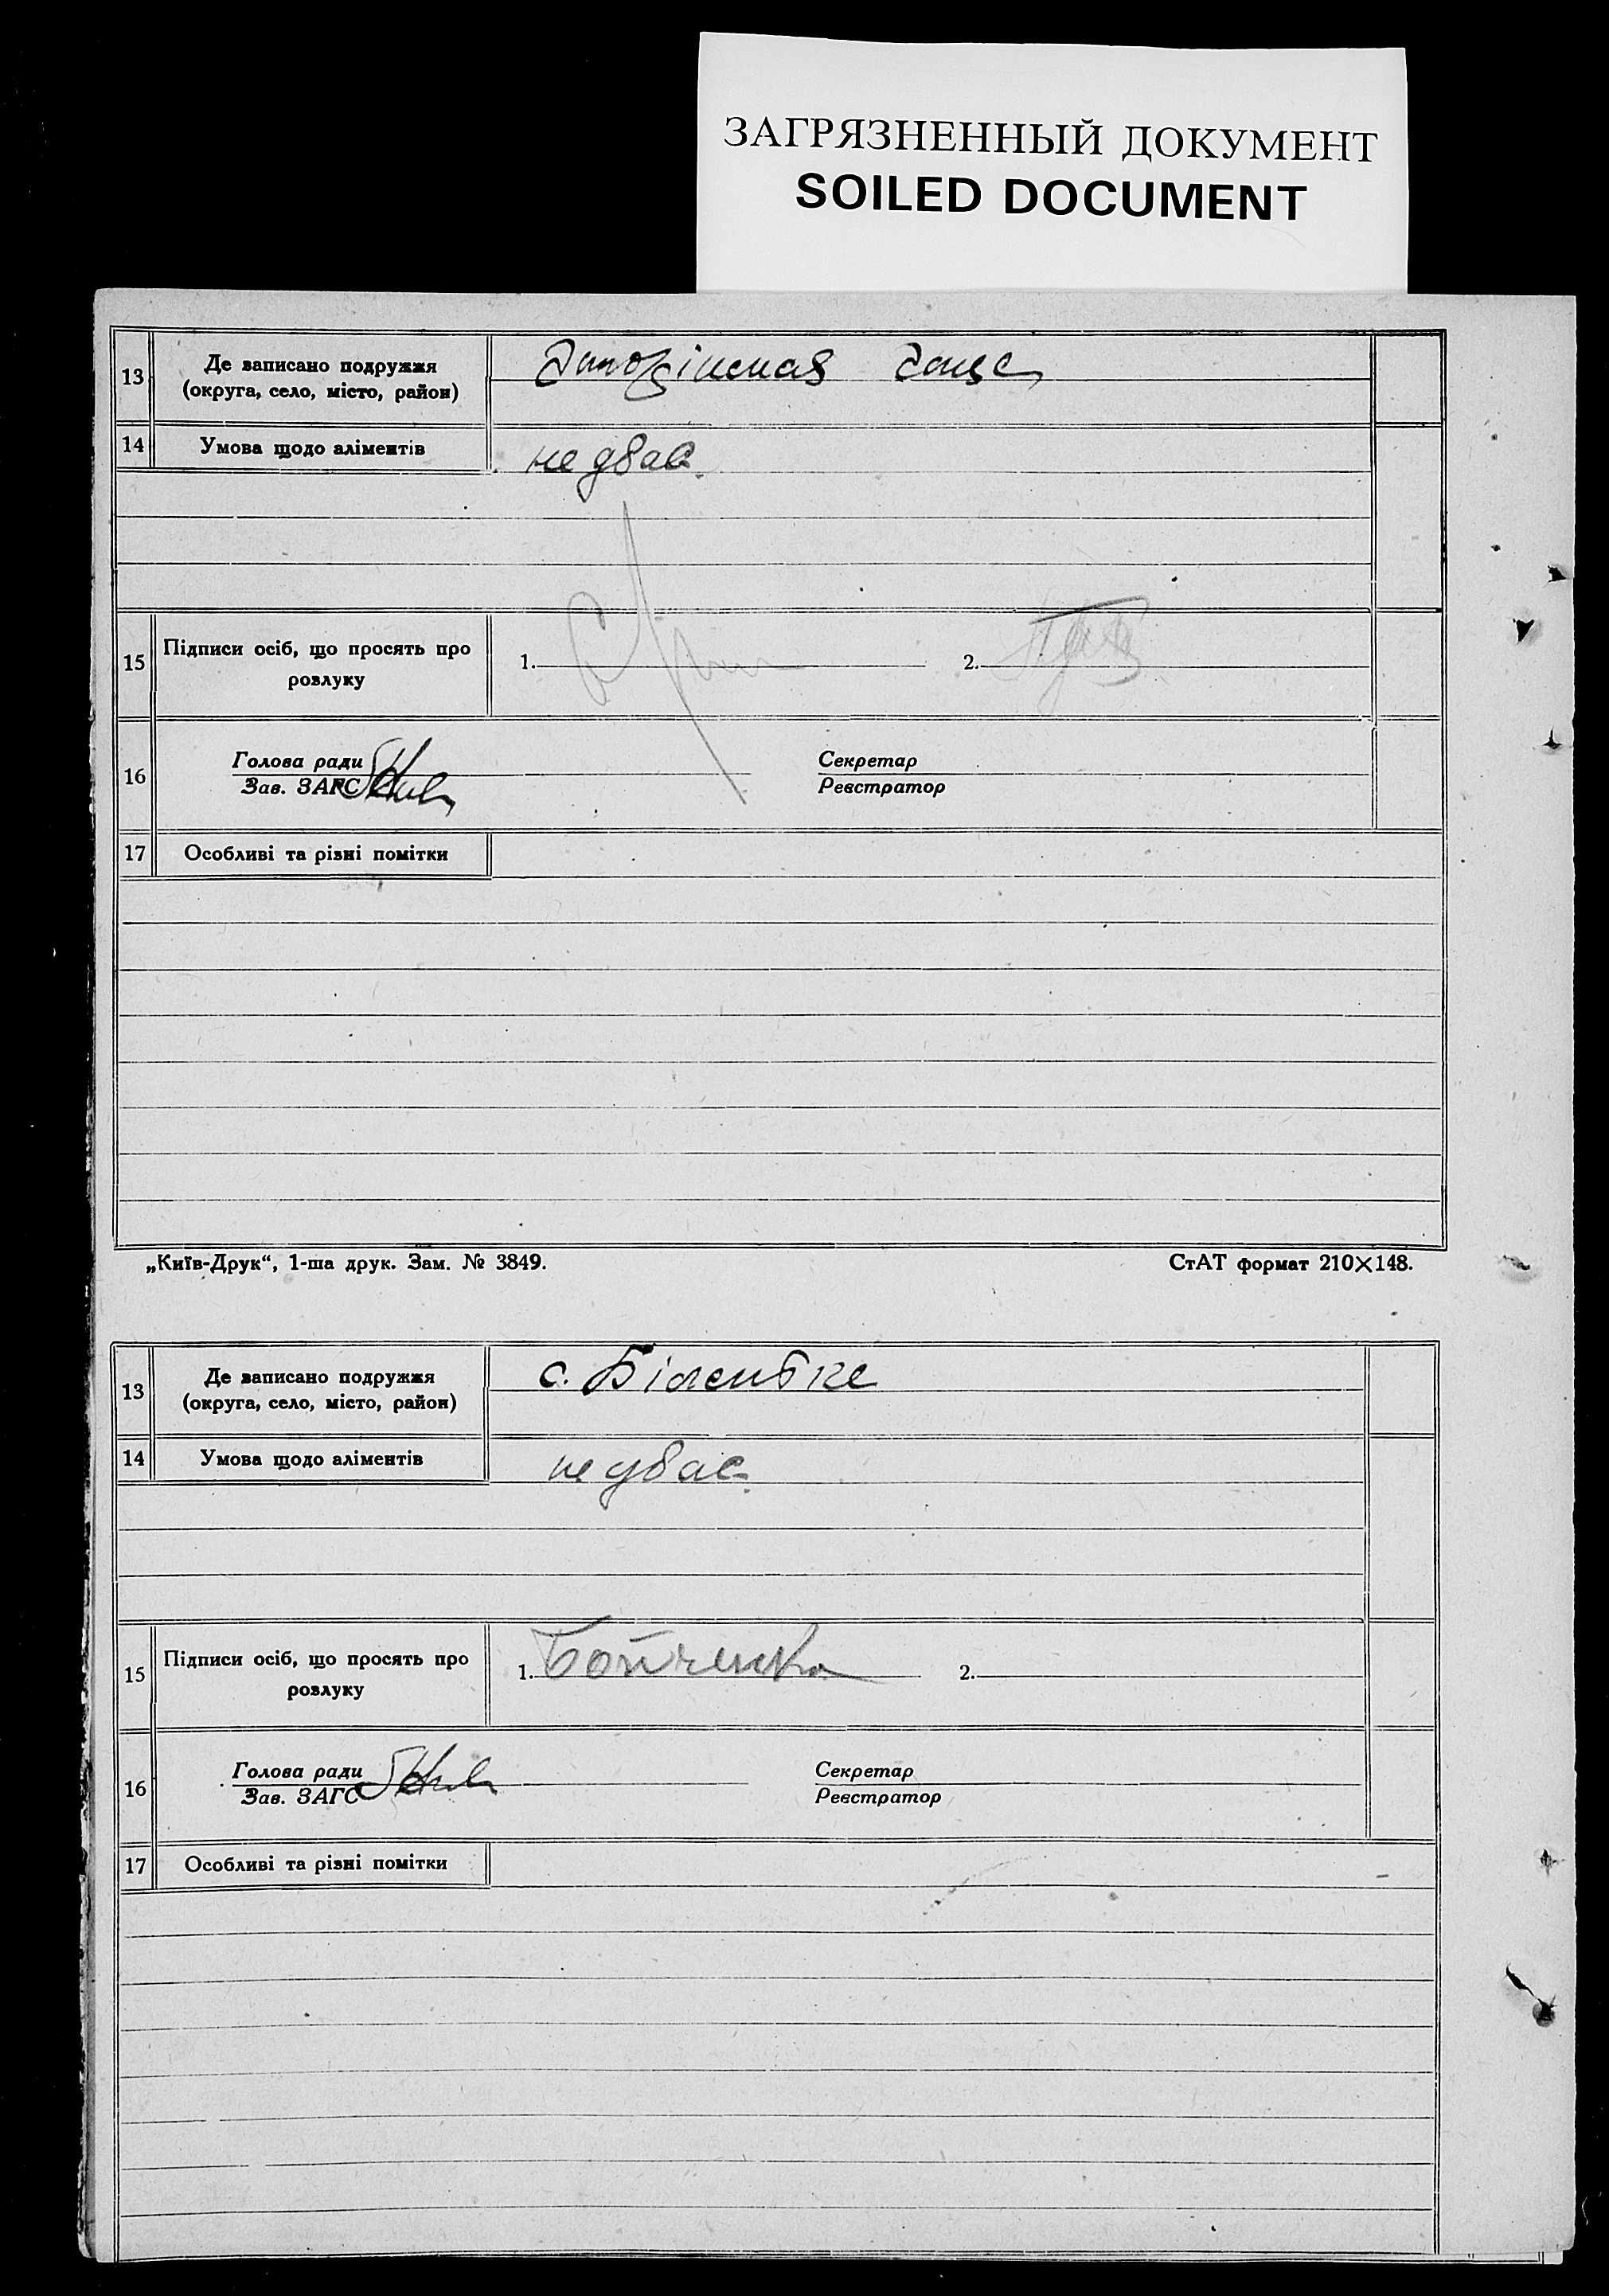 ЗАГРЯЗНЕННЫЙ ДОКУМЕНТ
SOILED DOCUMENT
13 Де записано подружжя
(округа, село, місто, район)
14 Умова щодо аліментів
не дбає.
15 Підписи осіб, що просять про розлуку
1. 2.
16 Голова ради
Зав. ЗАГС
Секретар
Реєстратор
17 Особливі та різні помітки
„Київ-Друк“, 1-ша друк. Зам. № 3849.
СтАТ формат 210×148.
13 Де записано подружжя
(округа, село, місто, район)
с. Біленьке
14 Умова щодо аліментів
не дбає.
15 Підписи осіб, що просять про розлуку
1. Бойченко 2.
16 Голова ради
Зав. ЗАГС
Секретар
Реєстратор
17 Особливі та різні помітки